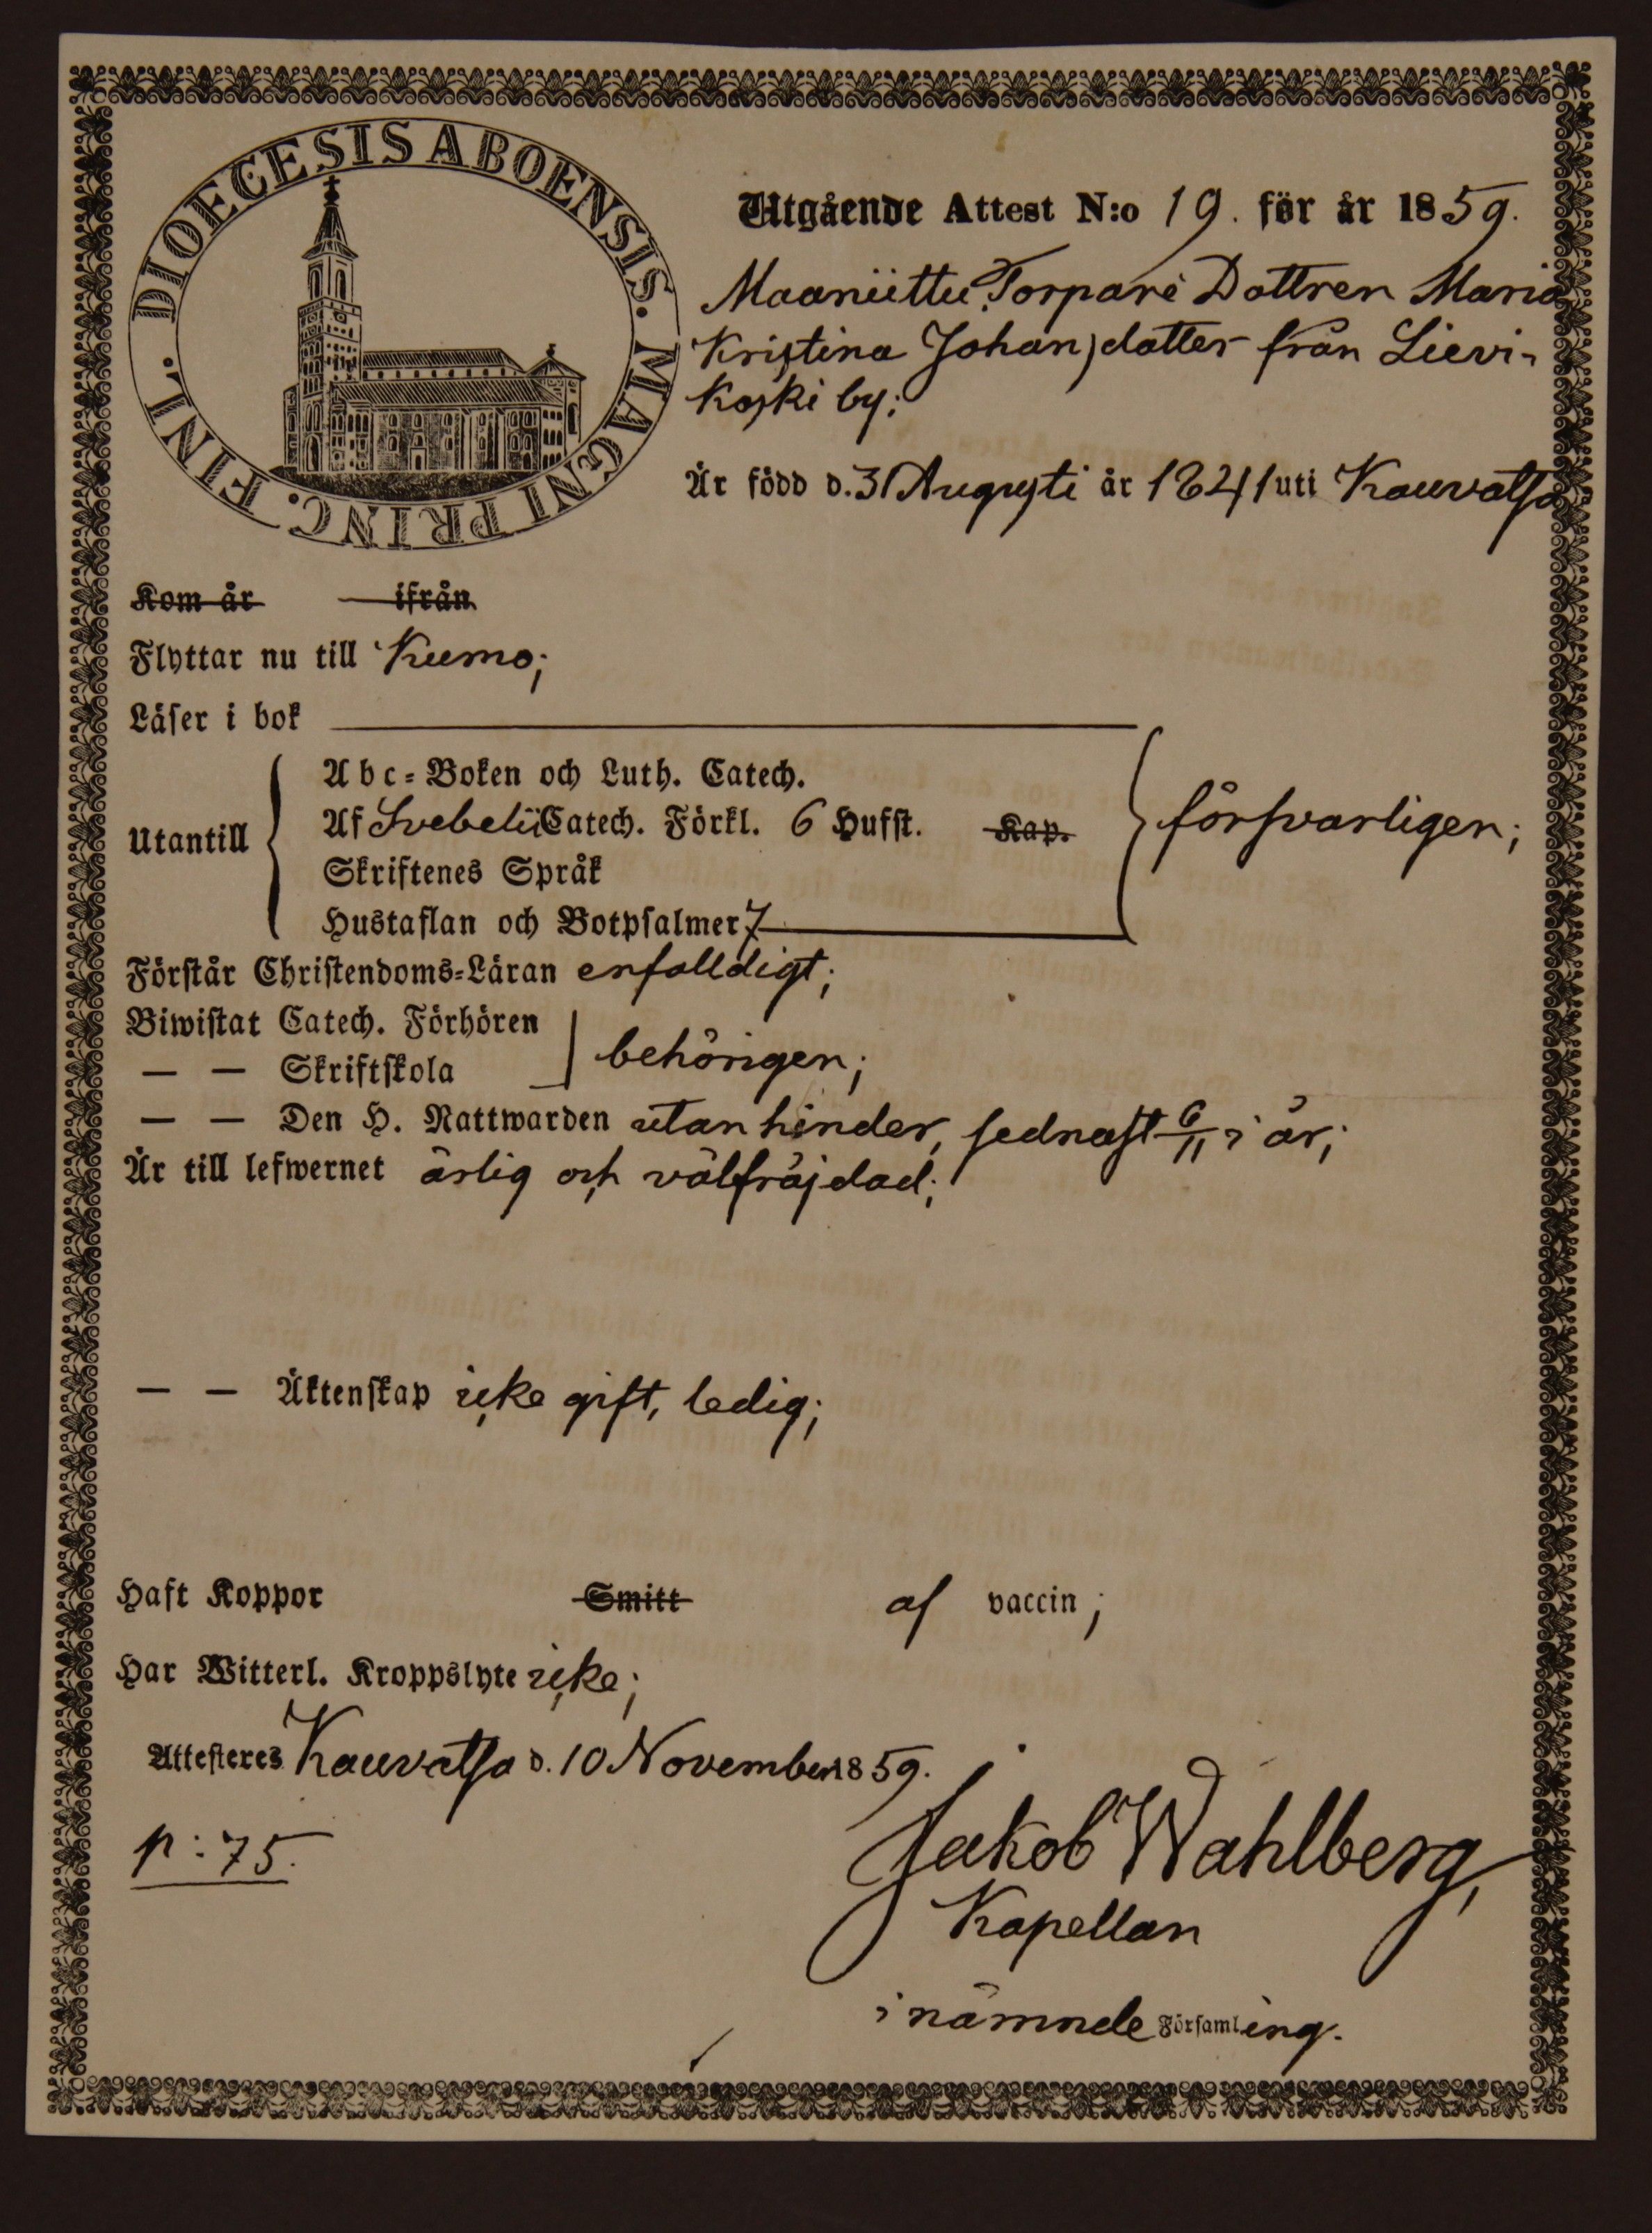 DIOECESIS ABOENSIS. MAGNI PRINC. FINL.
Utgående Attest N:o 19. för år 1859.
Maaniittu Torpare Dottren Maria
Kristina Johansdotter från Lievi-
koski by;
Är född d. 31 Augusti år 1841 uti Kauvatsa
Kom år ifrån
Flyttar nu till Kumo;
Läser i bok
Utantill
Abc-Boken och Luth. Catech.
Af Svebelii Catech. Förkl. 6 Hufst. Kap.
försvarligen;
Skriftenes Språk
Hustaflan och Botpsalmer 7
Förstår Christendoms-Läran enfalldigt;
Biwistat Catech. Förhören
— — Skriftskola
behörigen;
— — Den H. Nattwarden utan hinder, sednast 6/11 i år;
Är till lefwernet ärlig och välfräjdad;
— — Äktenskap icke gift, ledig;
Haft Koppor Smitt af vaccin;
Har Witterl. Kroppslyte icke;
Attesteres Kauvatsa d. 10 November 1859.
p: 75.
Jakob Wahlberg,
Kapellan
i nämnde Församling.